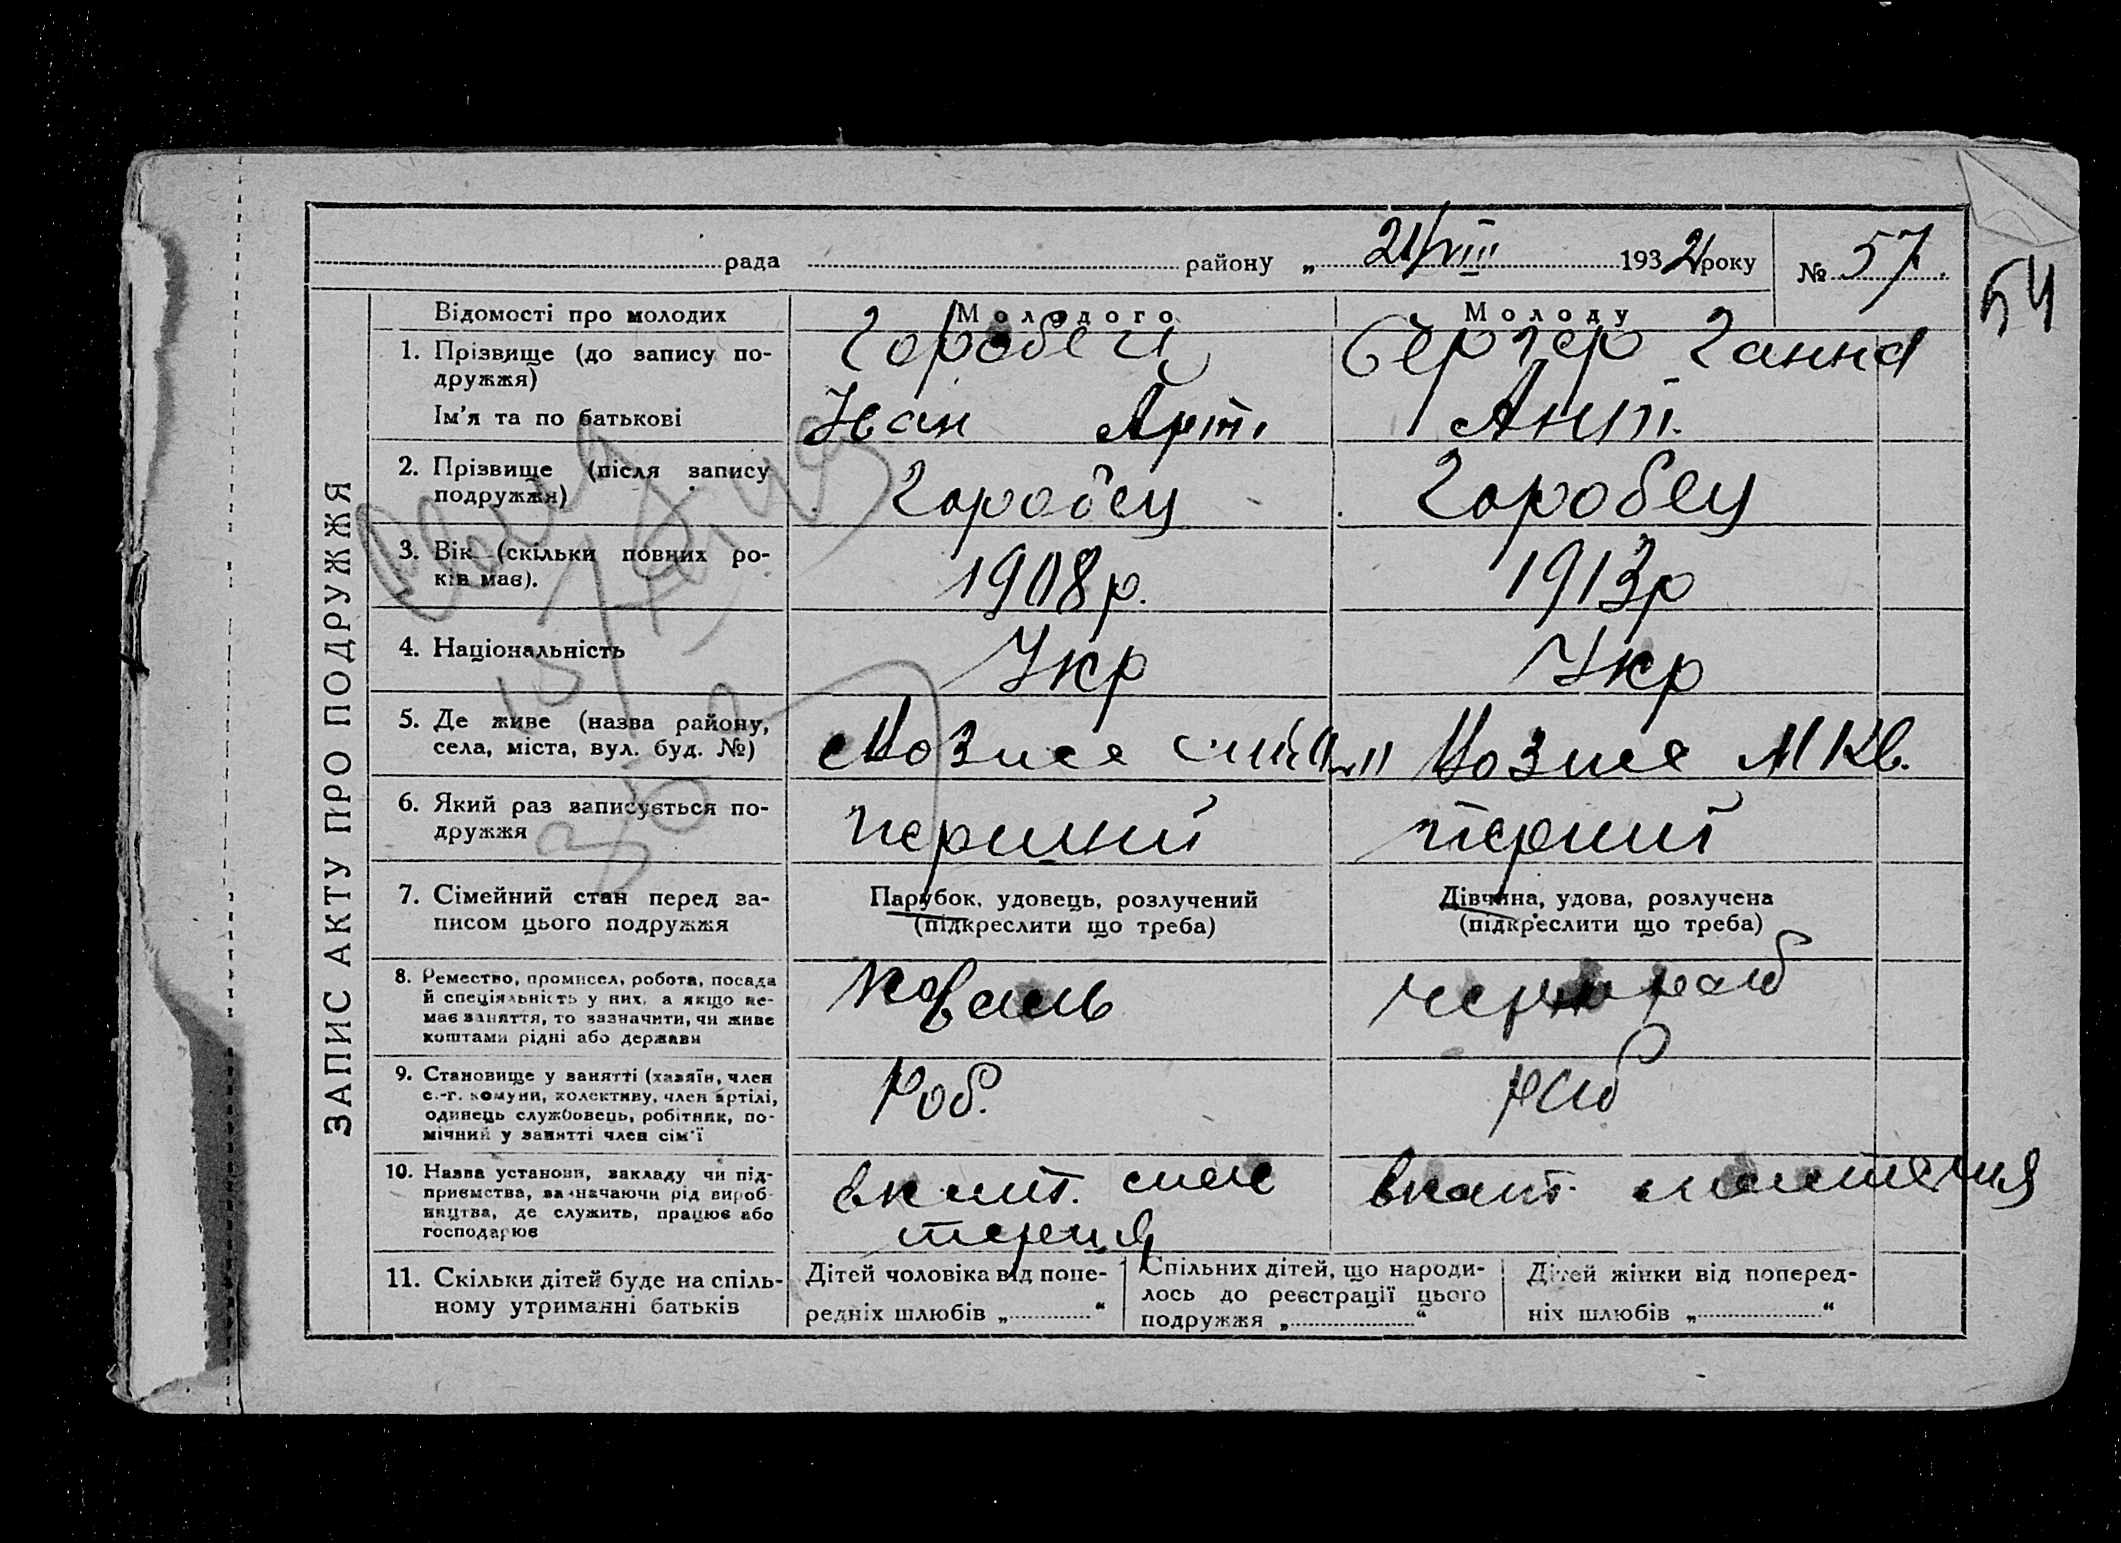 рада району „ 21/VIII 1932 року № 57.
54
ЗАПИС АКТУ ПРО ПОДРУЖЖЯ
Відомості про молодих
Молодого
Молоду
1. Прізвище (до запису по-
дружжя)
Ім'я та по батькові
Горобец
Іван Арт.
Бергер Ганна
Ант.
2. Прізвище (після запису
подружжя)
Горобец
Горобец
3. Вік (скільки повних ро-
ків має).
1908р.
1913р
4. Національність
Укр
Укр
5. Де живе (назва району,
села, міста, вул. буд. №)
6. Який раз записується по-
дружжя
перший
перший
7. Сімейний стан перед за-
писом цього подружжя
Парубок, удовець, розлучений
(підкреслити що треба)
Дівчина, удова, розлучена
(підкреслити що треба)
8. Ремество, промисел, робота, посада
й спеціяльність у них, а якщо не-
має заняття, то зазначити, чи живе
коштами рідні або держави
Коваль
чернораб
9. Становище у занятті (хазяїн, член
с.-г. комуни, колективу, член артілі,
одинець службовець, робітник, по-
мічний у занятті член сім'ї
Роб.
раб
10. Назва установи, закладу чи під-
приємства, зазначаючи рід вироб-
ництва, де служить, працює або
господарює
11. Скільки дітей буде на спіль-
ному утриманні батьків
Дітей чоловіка від попе-
редніх шлюбів „ “
Спільних дітей, що народи-
лось до реєстрації цього
подружжя „ “
Дітей жінки від поперед-
ніх шлюбів „ “